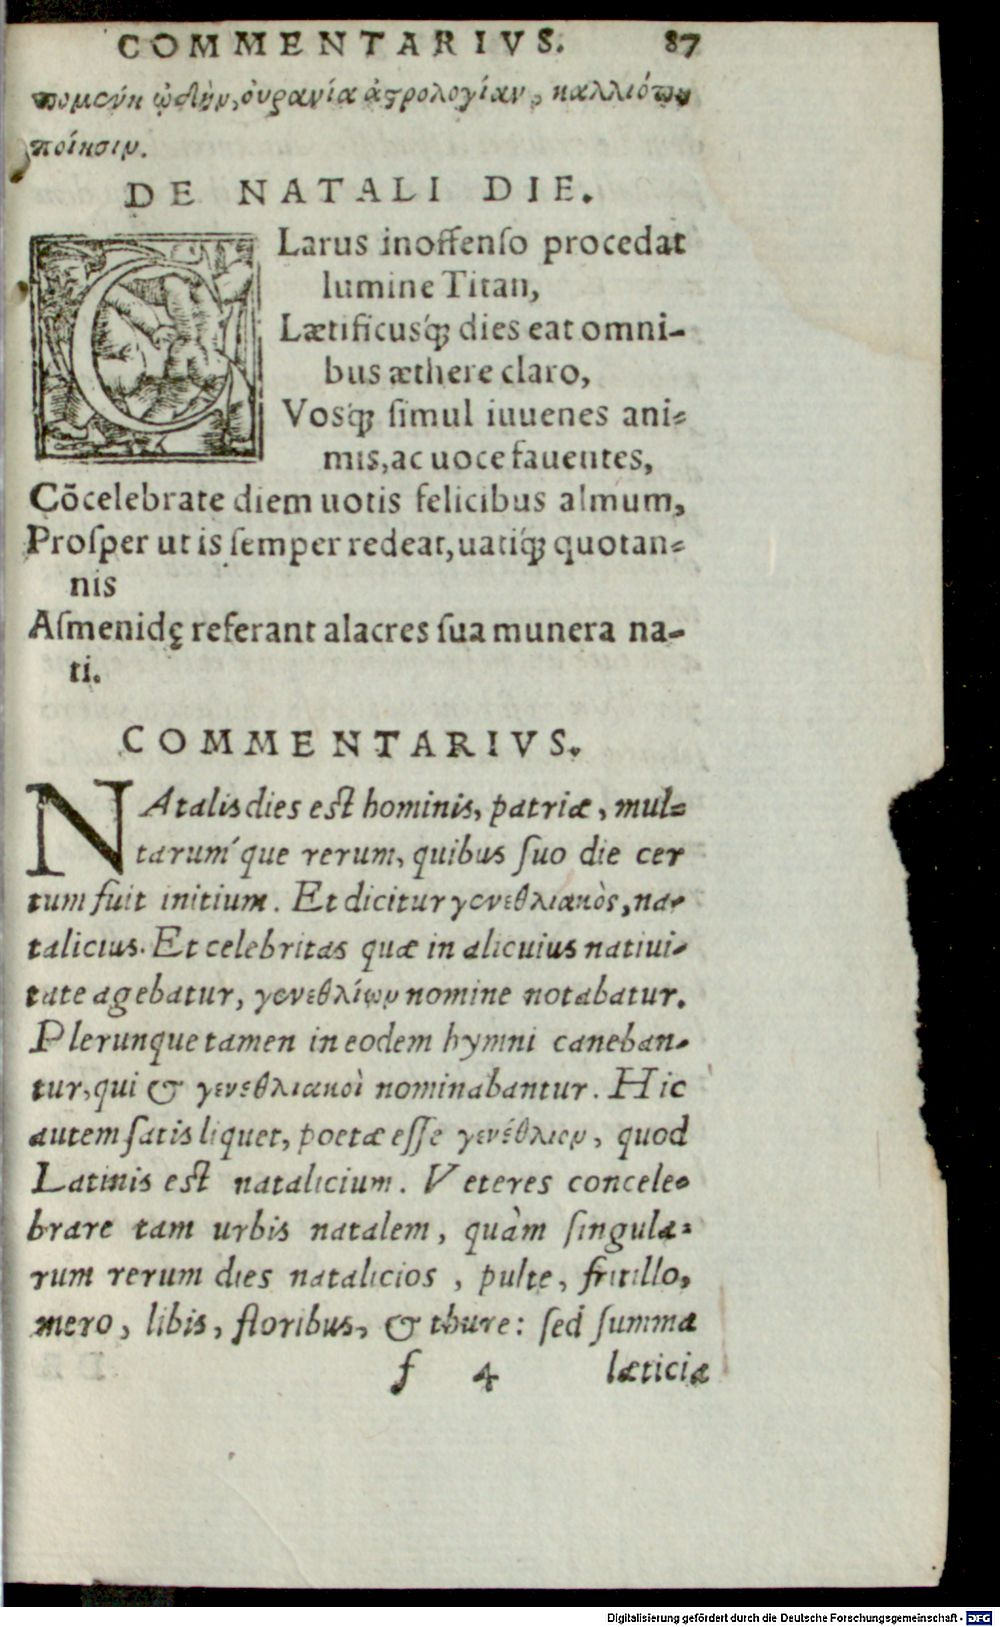 COMMENTARIVS. 87
πομένη ᾠδὴν, ὀυρανία ἀϛρολογίαν, καλλιόπη
ποίησιν.
DE NATALI DIE.
CLarus inoffenſo procedat
lumine Titan,
Lætificusq́; dies eat omni-
bus æthere claro,
Vosq́; ſimul iuuenes ani-
mis, ac uoce fauentes,
Cõcelebrate diem uotis felicibus almum,
Proſper ut is ſemper redeat, uatiq́; quotan-
nis
Aſmenidę referant alacres ſua munera na-
ti.
COMMENTARIVS.
NAtalis dies est hominis, patriæ, mul-
tarum´que rerum, quibus ſuo die cer
tum fuit initium. Et dicitur γενεθλιακὸς, na-
talicius. Et celebritas quæ in alicuius natiui-
tate agebatur, γενεθλίων nomine notabatur.
Plerunque tamen in eodem hymni caneban-
tur, qui & γενεθλιακοὶ nominabantur. Hic
autem ſatis liquet, poetæ eſſe γενέθλιον, quod
Latinis est natalicium. Veteres concele-
brare tam urbis natalem, quàm ſingula-
rum rerum dies natalicios, pulte, fritillo,
mero, libis, floribus, & thure: ſed ſumma
f 4 læticia
Digitalisierung gefördert durch die Deutsche Forschungsgemeinschaft - DFG